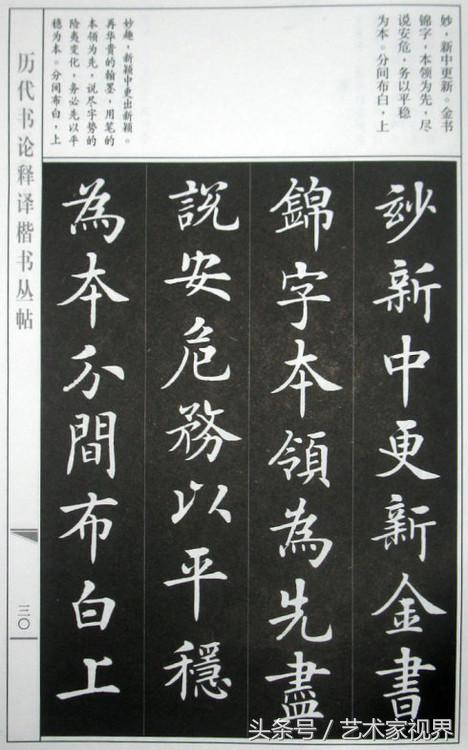 妙，新中更新。金书
锦字，本领为先，尽
说安危，务以平稳
为本。分间布白，上
妙趣，新颖中更出新颖。
再华贵的翰墨，用笔的
本领为先，说尽字势的
险夷变化，务必先以平
稳为本。分间布白，上
玅新中更新金書
錦字本領為先盡
說安危務以平穩
為本分間布白上
历代书论释译楷书丛帖
三〇
头条号 / 艺术家视界